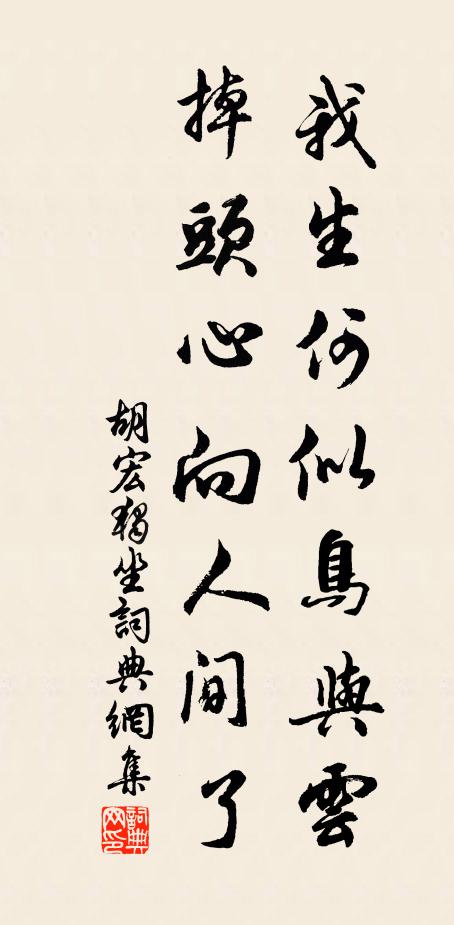 我生何似鳥與雲
掉頭心向人間了
胡宏獨坐詞典網集
詞典网印